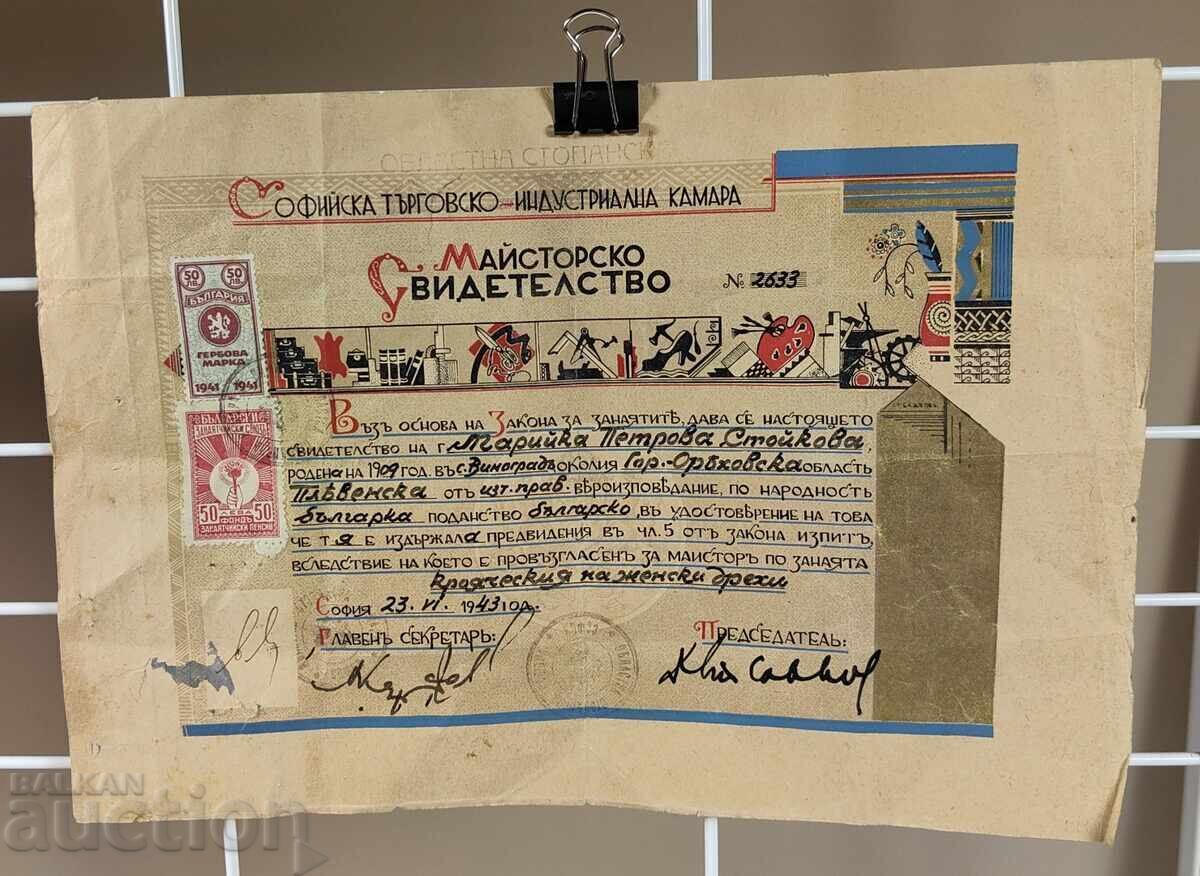 ОБЛАСТНА СТОПАНСК
СОФИЙСКА ТЪРГОВСКО-ИНДУСТРИАЛНА КАМАРА
МАЙСТОРСКО
СВИДЕТЕЛСТВО
№ 2633
50 ЛВ. 50 ЛВ.
БЪЛГАРИЯ
ГЕРБОВА
МАРКА
1941 1941
БЪЛГАРСКИ
ЗАНАЯТЧИЙСКИ СЪЮЗ
50 ЛЕВА 50
ФОНДЪ
ЗАНАЯТЧИЙСКИ ПЕНСИИ
Възъ основа на Закона за занаятитѣ, дава се настоящето
свидетелство на г. Марийка Петрова Стойкова,
родена на 1909 год. въ с. Виноградъ околия Гор.-Орѣховска область
Плѣвенска отъ изт. прав. вѣроизповѣдание, по народность
българка поданство българско, въ удостовѣрение на това
че тя е издържала предвидения въ чл. 5 отъ закона изпитъ,
вследствие на което е провъзгласенъ за майсторъ по занаята
крояческия на женски дрехи
София 23. VI. 1943 год.
Главенъ секретарь:
Председатель:
BALKAN
auction